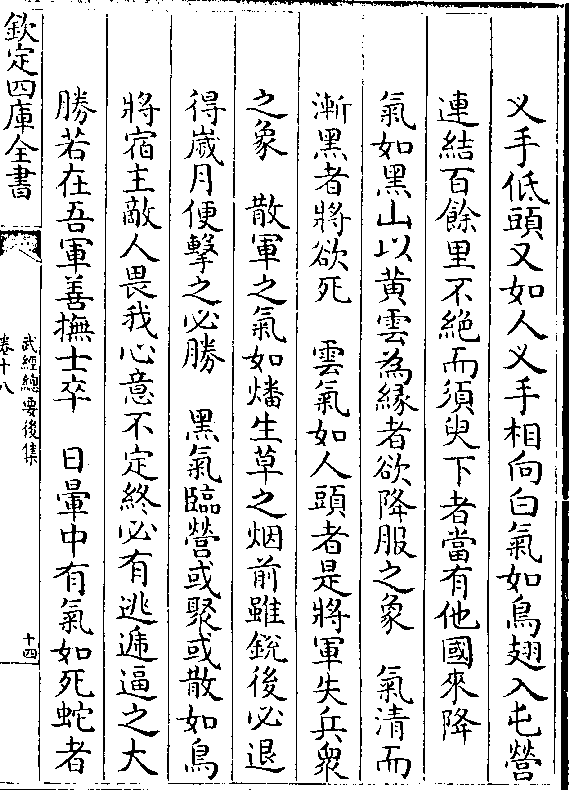 乂手低頭又如人乂手相向白氣如鳥翅入屯營
連結百餘里不絶而須臾下者當有他國來降
氣如黑山以黄雲為緣者欲降服之象　氣清而
漸黑者將欲死　雲氣如人頭者是將軍失兵衆
之象　散軍之氣如燔生草之烟前雖銳後必退
得嵗月便擊之必勝　黑氣臨營或聚或散如鳥
將宿主敵人畏我心意不定終必有逃遁逼之大
勝若在吾軍善撫士卒　日暈中有氣如死蛇者
欽定四庫全書
武經總要後集
卷十八
十四